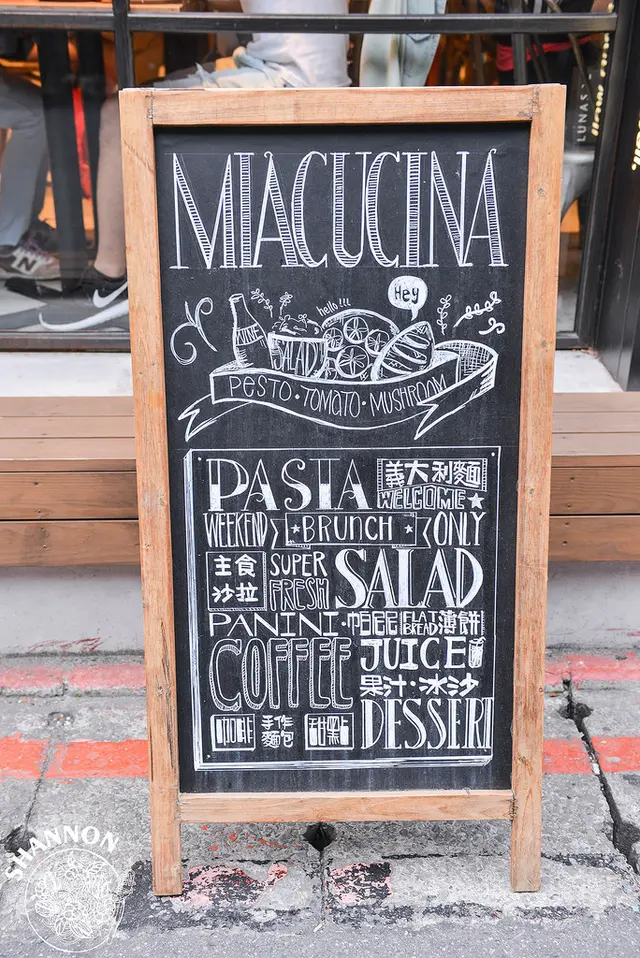 LUNAS
MIACUCINA
Hey
hello!!!
WINE
SALAD
PESTO · TOMATO · MUSHROOM
PASTA 義大利麵
WELCOME ★
WEEKEND BRUNCH ONLY
主食 SUPER SALAD
沙拉 FRESH
PANINI · 帕尼尼 FLAT BREAD 薄餅
COFFEE JUICE
果汁 · 冰沙
咖啡 手作麵包 甜點 DESSERT
SHANNON